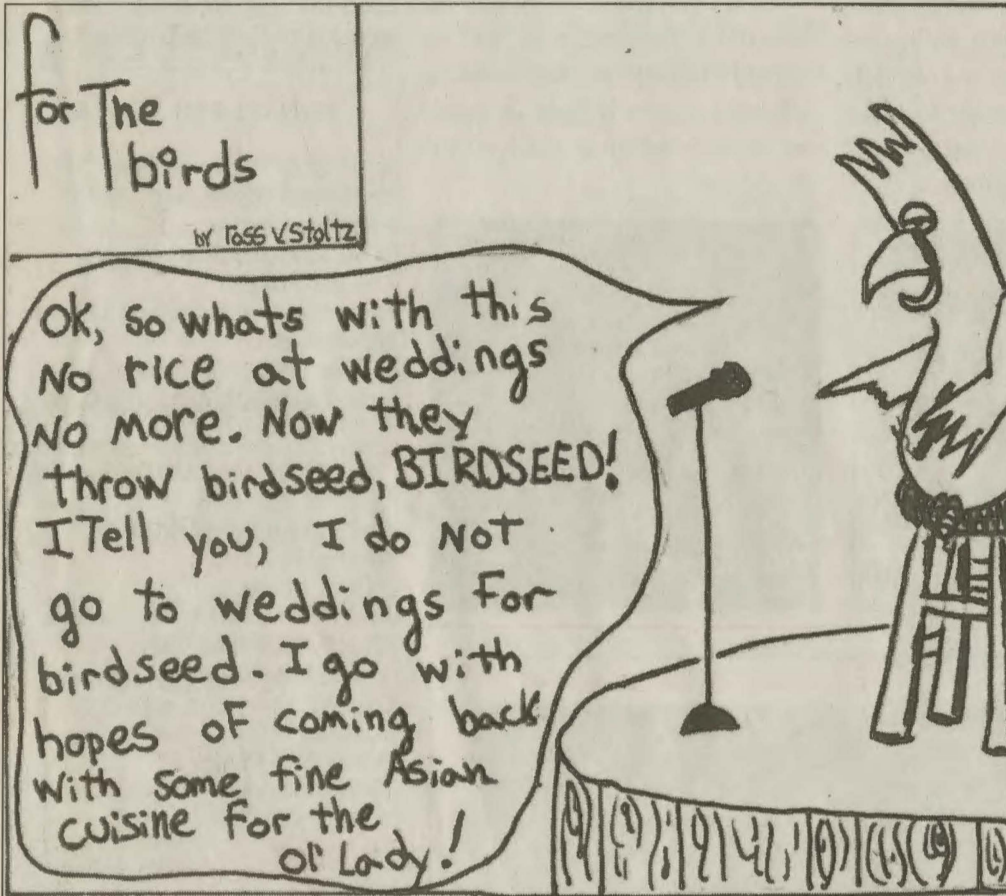 for The
birds
by Ross V Stoltz
Ok, so whats with this
No rice at weddings
No more. Now they
throw birdseed, BIRDSEED!
I Tell you, I do Not
go to weddings for
birdseed. I go with
hopes of coming back
with some fine Asian
cuisine for the
Ol' Lady!